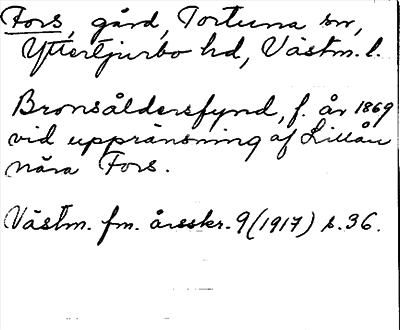 Fors, gård, Tortuna sn,
Yttertjurbo hd, Västm. l.
Bronsåldersfynd, f. år 1869
vid uppränsning af Lillån
nära Fors.
Västm. fm. årsskr. 9 (1917) s. 36.